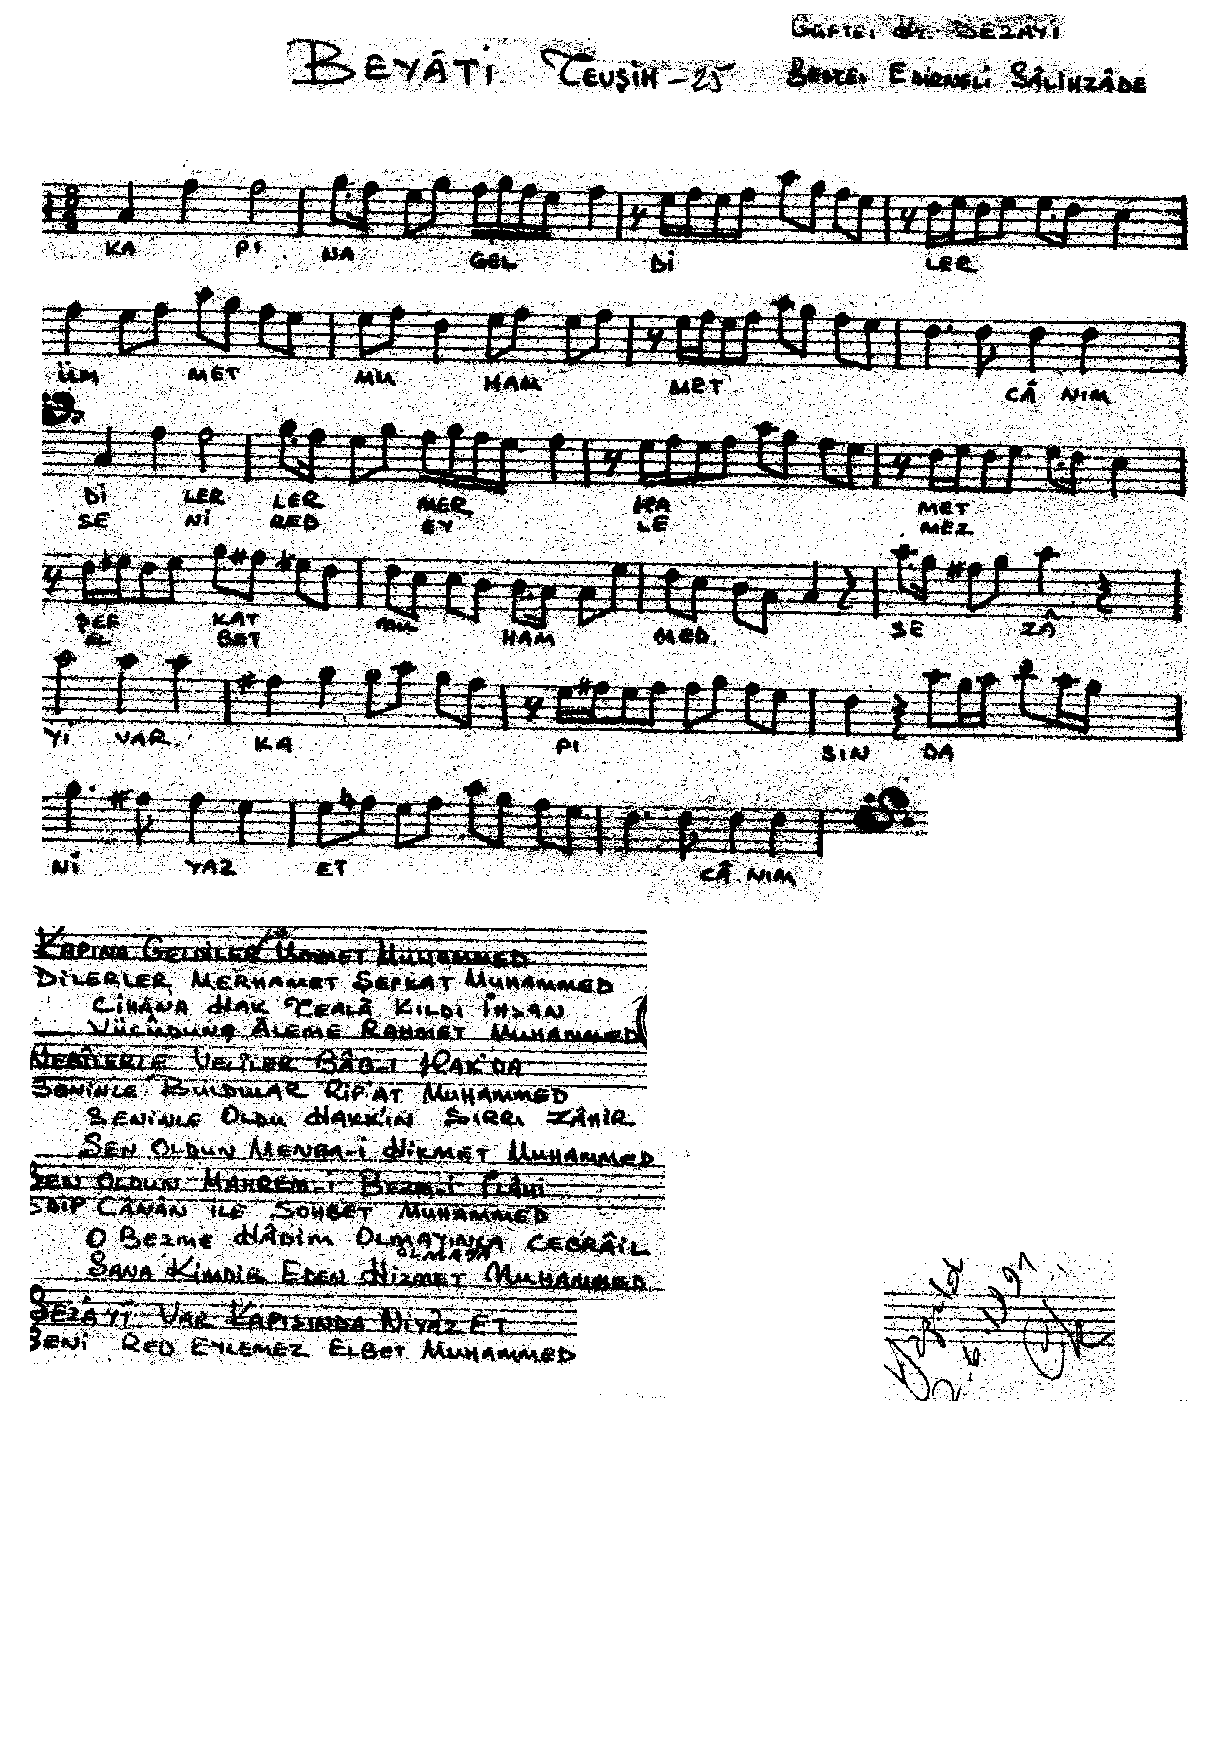 Güfte: Hz. Sezâyi
BEYÂTİ TEVŞİH-25 Beste: EDİRNELİ SÂLİHZÂDE
KA Pİ NA GEL Dİ LER
ÜM MET MU HAM MET CÂ NIM
Dİ LER LER MER HA MET
SE NI RED EY LE MEZ
ŞEF KAT MU HAM MED SE ZÂ
EL BET
Yİ VAR KA PI SIN DA
Nİ YAZ ET CÂ NIM
KAPINA GELDİLER ÜMMET MUHAMMED
DİLERLER MERHAMET ŞEFKAT MUHAMMED
CİHÂNA HAK TEALÂ KILDI İHSAN
VÜCÛDUNÇ ÂLEME RAHMET MUHAMMED
NEBÎLERLE VELİLER BÂB-I HAK'DA
SENİNLE BULDULAR RİF'AT MUHAMMED
SENİNLE OLDU HAKK'IN SIRRI ZÂHİR
SEN OLDUN MENBA-İ HİKMET MUHAMMED
SEN OLDUN MAHREM-İ BEZM-İ İLÂHİ
EDİP CÂNÂN İLE SOHBET MUHAMMED
O BEZME HÂDİM OLMAYINCA CEBRÂİL
OLMASA
SANA KİMDİR EDEN HİZMET MUHAMMED
SEZÂYİ VAR KAPISINDA NİYÂZ ET
SENİ RED EYLEMEZ ELBET MUHAMMED